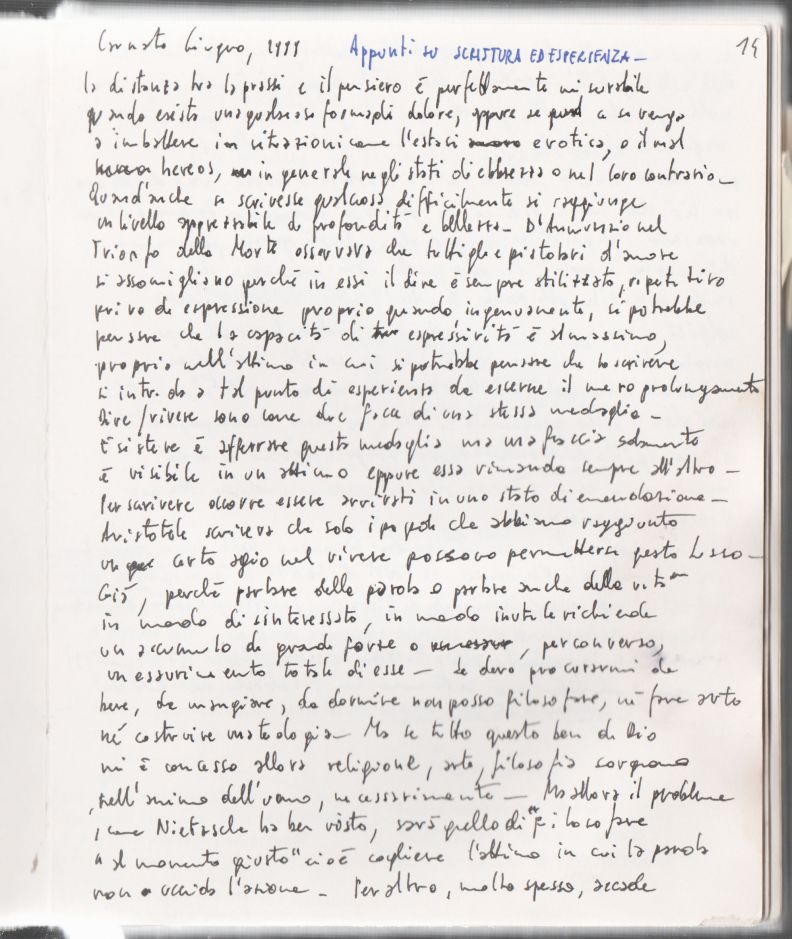 Giugno, 1999 Appunti su SCRITTURA ED ESPERIENZA - 14
la distanza tra la prassi e il pensiero è perfettamente misurabile
quando esista una qualsiasi forma di dolore, oppure se a se venga
a imbattere in situazioni come l'estasi erotica, o il mal
hereos, in generale negli stati di ebbrezza o nel loro contrario -
Quand'anche si scrivesse qualcosa difficilmente si raggiunge
un livello apprezzabile di profondità e bellezza - D'Annunzio nel
Trionfo della Morte osservava che tutti gli epistolari d'amore
si assomigliano perché in essi il dire è sempre stilizzato, ripetitivo
privo di espressione proprio quando, ingenuamente, si potrebbe
pensare che la capacità di espressività è al massimo,
proprio nell'attimo in cui si potrebbe pensare che lo scrivere
si intrida a tal punto di esperienza da esserne il mero prolungamento
Dire / vivere sono come due facce di una stessa medaglia -
Esistere è afferrare questa medaglia ma una faccia solamente
è visibile in un attimo eppure essa rimanda sempre all'altro -
Per scrivere occorre essere arrivati in uno stato di
Aristotele scriveva che solo i popoli che abbiano raggiunto
un certo agio nel vivere possono permettersi questo lusso -
Già, perché parlare della parola o parlare anche della vita
in modo disinteressato, in modo inutile richiede
un accumulo di grandi forze o, per converso,
un esaurimento totale di esse - Se devo procurarmi da
bere, da mangiare, da dormire non posso filosofare, né fare arte
né costruire una teologia - Ma se tutto questo ben di Dio
mi è concesso allora religione, arte, filosofia sorgono
nell'animo dell'uomo, necessariamente - Ma allora il problema
, come Nietzsche ha ben visto, sarà quello di filosofare
"al momento giusto" cioè cogliere l'attimo in cui la parola
non uccida l'azione - Peraltro, molto spesso, accade